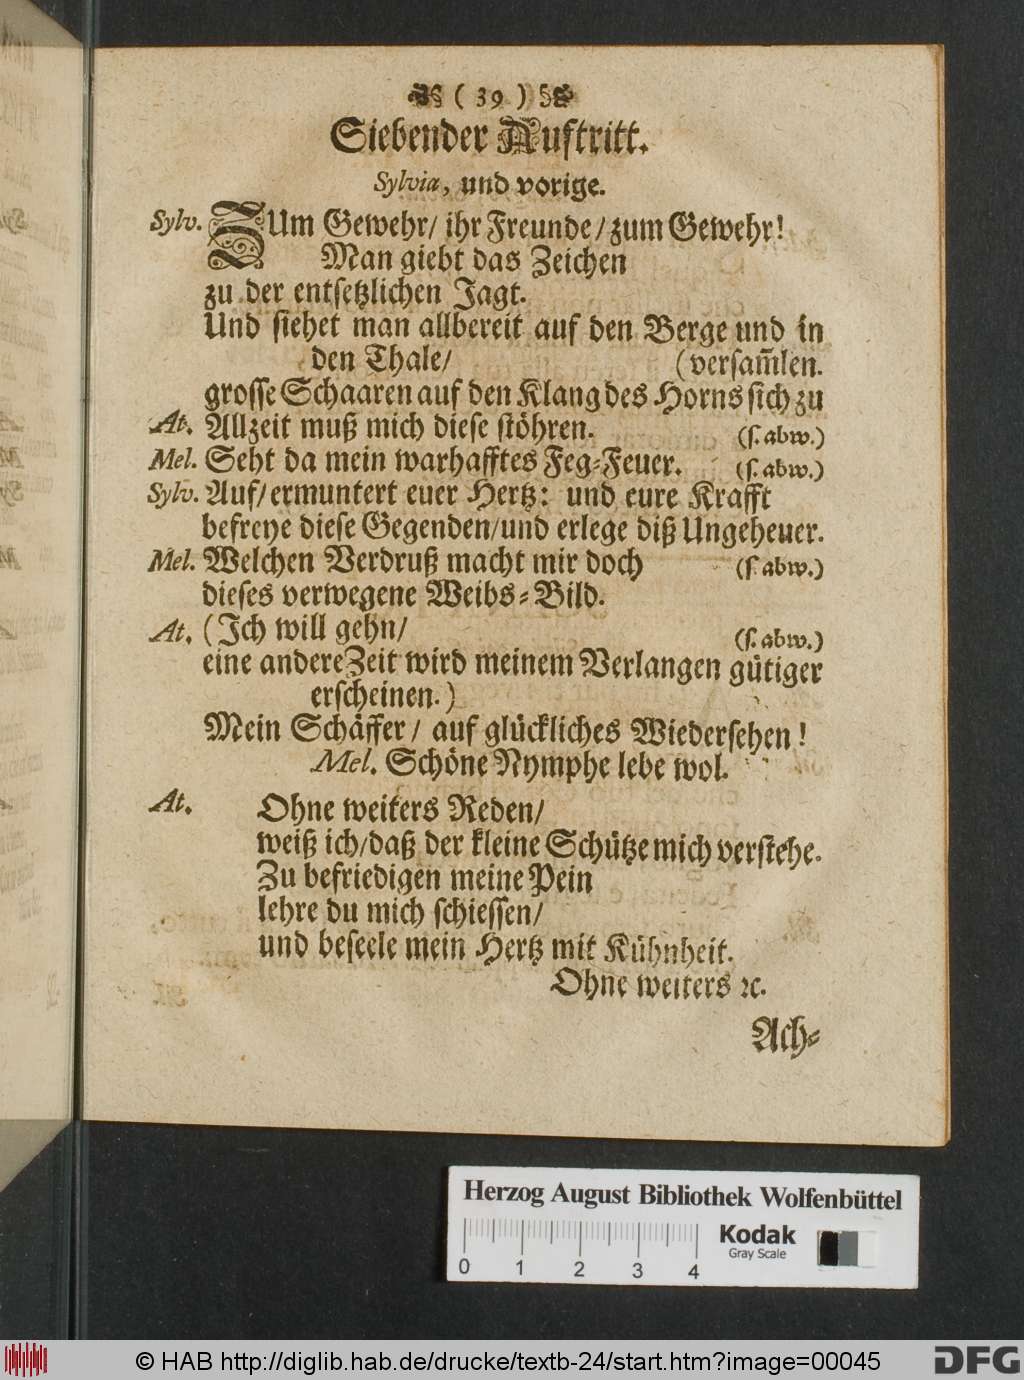 ( 39 )
Siebender Auftritt.
Sylvia, und vorige.
Sylv. ZUm Gewehr/ ihr Freunde/ zum Gewehr!
Man giebt das Zeichen
zu der entsetzlichen Jagt.
Und siehet man allbereit auf den Berge und in
den Thale/ (versam̃len.
grosse Schaaren auf den Klang des Horns sich zu
At. Allzeit muß mich diese stöhren. (s. abw.)
Mel. Seht da mein warhafftes Feg-Feuer. (s. abw.)
Sylv. Auf/ ermuntert euer Hertz: und eure Krafft
befreye diese Gegenden/und erlege diß Ungeheuer.
Mel. Welchen Verdruß macht mir doch (s. abw.)
dieses verwegene Weibs-Bild.
At. (Ich will gehn/ (s. abw.)
eine andere Zeit wird meinem Verlangen gütiger
erscheinen.)
Mein Schäffer/ auf glückliches Wiedersehen!
Mel. Schöne Nymphe lebe wol.
At. Ohne weiters Reden/
weiß ich/daß der kleine Schütze mich verstehe.
Zu befriedigen meine Pein
lehre du mich schiessen/
und beseele mein Hertz mit Kühnheit.
Ohne weiters ꝛc.
Ach-
Herzog August Bibliothek Wolfenbüttel
Kodak
Gray Scale
0 1 2 3 4
© HAB http://diglib.hab.de/drucke/textb-24/start.htm?image=00045
DFG